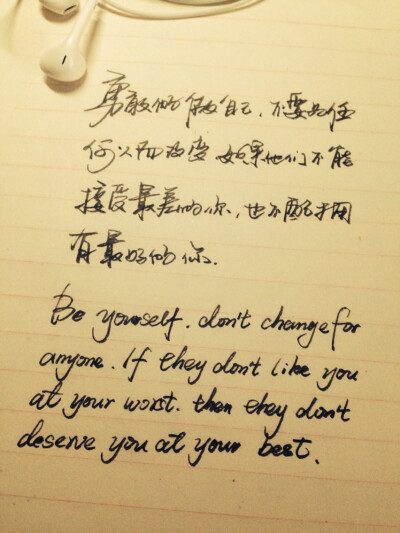 勇敢的做自己.不要为任
何人而改变.如果他们不能
接受最差的你,也不配拥
有最好的你.
Be yourself. don't change for
anyone. If they don't like you
at your worst. then they don't
deserve you at your best.